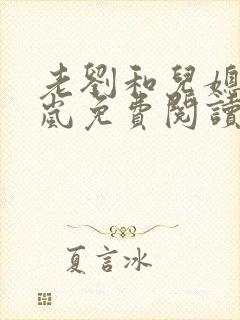 老劉和兒媳
嵐免費閱讀
夏言冰